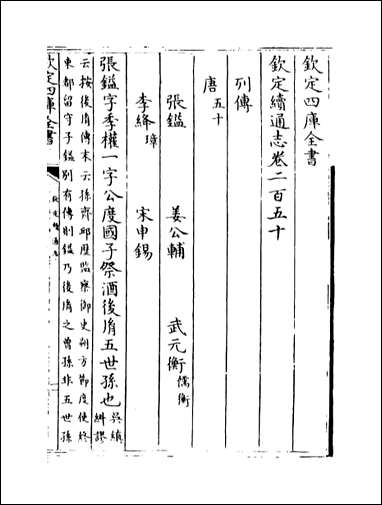 欽定四庫全書
欽定續通志卷二百五十
列傳
唐五十
張鎰 姜公輔 武元衡儒衡
李絳璋 宋申錫
張鎰字季權一字公度國子祭酒後胤五世孫也吳縝糾謬
云按後胤傳末云孫齊邱歴監察御史朔方節度使終
東都留守子鎰別有傳則鎰乃後胤之曾孫非五世孫
欽定四庫全書